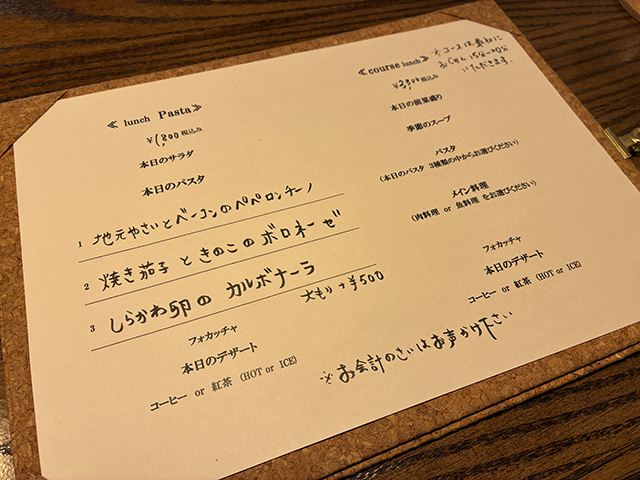 ≪ lunch Pasta ≫
¥1,800 税込み
本日のサラダ
本日のパスタ
1 地元やさいとベーコンのペペロンチーノ
2 焼き茄子ときのこのボロネーゼ
3 しらかわ卵のカルボナーラ
大もり+¥500
フォカッチャ
本日のデザート
コーヒー or 紅茶 (HOT or ICE)
≪course lunch≫
※コースは最初に
おじかん 15分~20分
いただきます。
¥3,300 税込み
本日の前菜盛り
季節のスープ
パスタ
(本日のパスタ 3種類の中からお選びください)
メイン料理
(肉料理 or 魚料理 をお選びください)
フォカッチャ
本日のデザート
コーヒー or 紅茶 (HOT or ICE)
※お会計のさいはお声かけ下さい